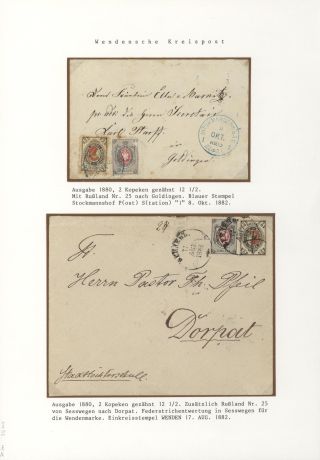 Wendensche Kreispost
Dem Fräulein
pr. Adr. die Herren
Carl
Goldingen
OKT.
Ausgabe 1880, 2 Kopeken gezähnt 12 1/2.
Mit Rußland Nr. 25 nach Goldingen. Blauer Stempel
Stockmannshof P(ost) S(tation) "1" 8. Okt. 1882.
Fr.
Herrn Pastor Th. Pfeil
Dorpat
Ausgabe 1880, 2 Kopeken gezähnt 12 1/2. Zusätzlich Rußland Nr. 25
von Sesswegen nach Dorpat. Federstrichentwertung in Sesswegen für
die Wendenmarke. Einkreisstempel WENDEN 17. AUG. 1882.